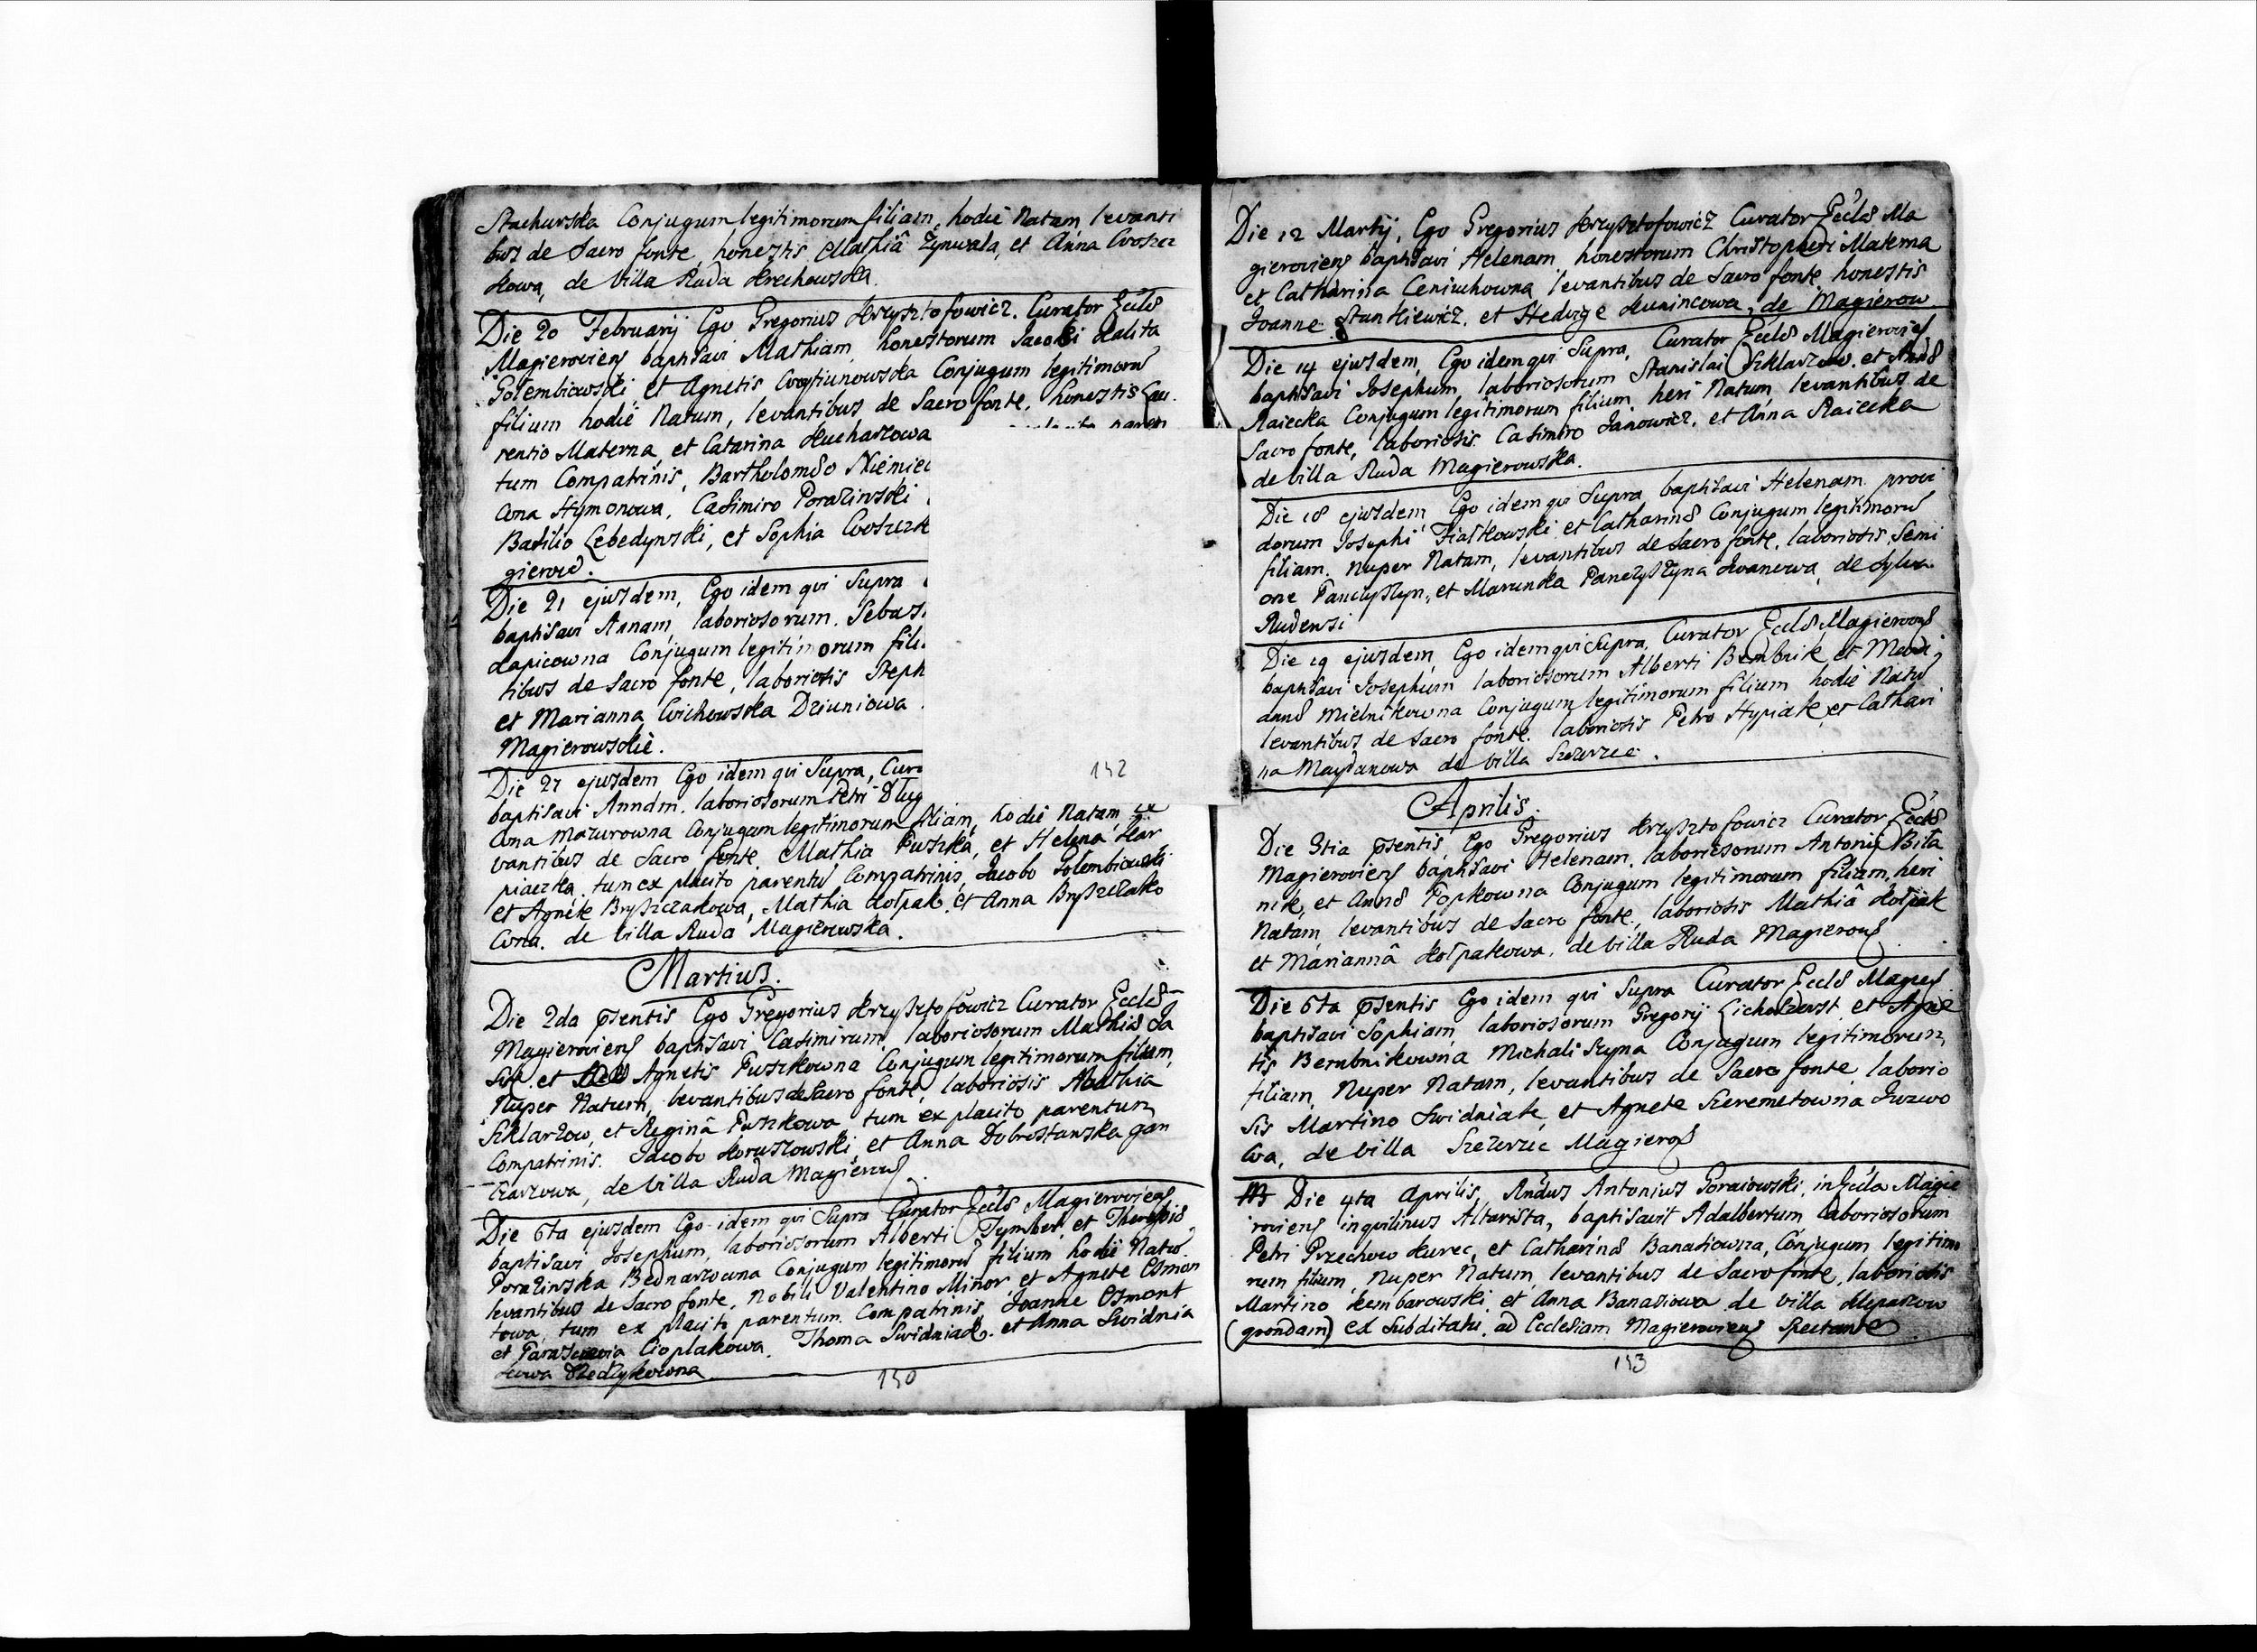 Stachurska Conjugum legitimorum filiam, hodie Natam, levanti
bus de Sacro fonte, honestis Mathiâ Zynwala, et Anna Woszcz
kowa, de villa Ruda Krechowska.
Die 20 Februarij Ego Gregorius Krzysztofowicz. Curator Eccles
Magierovien baptisavi Mathiam, honestorum Jacobi Kalita
Golembiowski, et Agnetis Conjugum legitimoru
filium hodie Natum, levantibus de Sacro fonte, honestis Lau
rentio Materna, et Catarina Kucharzowa
tum Compatrinis, Bartholomeo Niemiec
Hymonowa, Casimiro Porazinski
Basilio Lebedynski, et Sophia
gierovie.
Die 21 ejusdem, Ego idem qui Supra
baptisavi Annam, laboriosorum. Sebas
Conjugum legitimorum fili
tibus de Sacro fonte, laboriosis Steph
et Marianna Wichowska Dziuniowa
Magierowskie.
Die 27 ejusdem Ego idem qui Supra, Cura
baptisavi Annam. laboriosorum Petri Dlug
Mazurowna Conjugum legitimorum filiam, hodie Natam le
vantibus de Sacro fonte. Mathia Puszka, et Helena Kar
piaczka. tum ex placito parentu Compatrinis, Jacobo Golembiowski
et Agnete Bryszczakowa, Mathia Kolpak. et Anna Bryszczako
wna. de villa Ruda Magierowska.
Martius.
Die 2da psentis Ego Gregorius Krzysztofowicz Curator Eccles
Magierovien baptisavi Casimirum, laboriosorum Mathiæ
et Agnetis Puszkowna Conjugum legitimorum filium,
Nuper Natum, levantibus de Sacro fonte, laboriosis Mathia
Szklarzow, et Reginâ Puszkowa, tum ex placito parentum
Compatrinis. Jacobo Koruszowski, et Anna Dobrostanska gan
czarzowa, de villa Ruda Magierov.
Die 6ta ejusdem Ego idem qui Supra Curator Eccles Magierovien
baptisavi Josephum, laboriosorum Alberti Tymber, et Theresiæ
Porazinska Bednarzowna Conjugum legitimoru filium hodie Natu
levantibus de Sacro fonte, Nobili Valentino Minor, et Agnete Osmon
towa, tum ex placito parentum Compatrinis, Joanne Osmont
et Parascevia Cioplakowa. Thoma Swidniak. et Anna Swidnia
kowa
150
152
Die 12 Martij, Ego Gregorius Krzysztofowicz Curator Eccles Ma
gierovien baptisavi Helenam, honestorum Christophori Materna
et Catharina levantibus de Sacro fonte, honestis
Joanne Stankiewicz. et Hedvige Kunincowa, de Magierow.
Die 14 ejusdem, Ego idem qui Supra, Curator Eccles Magierovien
baptisavi Josephum, laboriosorum Stanislai Szklarzow. et Annæ
Raiecka Conjugum legitimorum filium, heri Natum, levantibus de
Sacro fonte, laboriosis Casimiro Janowicz. et Anna Raiecka
de villa Ruda Magierowska.
Die 18 ejusdem Ego idem qui Supra, baptisavi Helenam provi
dorum Josephi Fialkowski et Catharinæ Conjugum legitimoru
filiam. Nuper Natam, levantibus de Sacro fonte, laboriosis, Semi
one Panczyszyn, et Marunka Panczyszyna Iwanowa, de Sylva
Rudensi
Die 19 ejusdem, Ego idem qui Supra, Curator Eccles Magierov
baptisavi Josephum laboriosorum Alberti Bembnik et
annæ Mielnikowna Conjugum legitimorum filium hodie Natu
levantibus de Sacro fonte. laboriosis Petro Hypiak, et Cathari
na Maydanowa de villa Szczerzec.
Aprilis.
Die 3tia psentis, Ego Gregorius Krzysztofowicz Curator Eccles
Magierovien baptisavi Helenam, laboriosorum Antonij Bita
nik, et Annæ Popkowna Conjugum legitimorum filiam, heri
Natam, levantibus de Sacro fonte, laboriosis Mathiâ Kolpak
et Mariannâ Kolpakowa, de villa Ruda Magierov
Die 6ta psentis Ego idem qui Supra Curator Eccles Magier
baptisavi Sophiam, laboriosorum Gregorij et Agne
tis Bembnikowna Michaliszyna Conjugum legitimorum,
filiam, Nuper Natam, levantibus de Sacro fonte, laborio
sis Martino Swidniak, et Agnete Szeremetowna
wa, de villa Szczerzec Magierov
Die 4ta Aprilis, Rndus Antonius Goraiowski, in Eccla Magie
rovien inquilinus Altarista, baptisavit Adalbertum laboriosorum
Petri Przechow Kurec, et Catharinæ Banasiowna, Conjugum legitimo
rum filium, Nuper Natum, levantibus de Sacro fonte, laboriosis
Martino Kembarowski, et Anna Banasiowa de villa
(quondam) ex Subditatu, ad Ecclesiam Magierovien Spectante
153